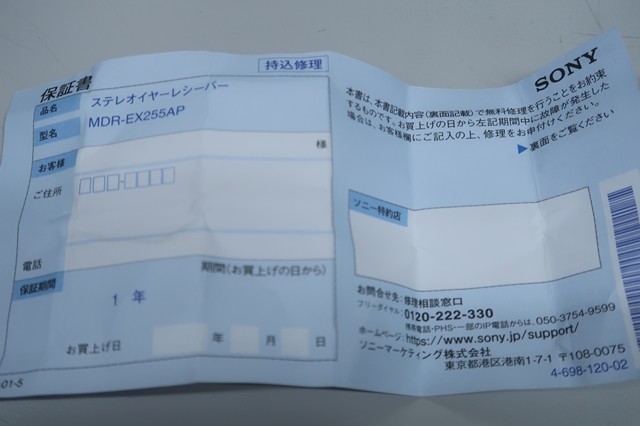 保証書
持込修理
品名 ステレオイヤーレシーバー
型名 MDR-EX255AP
お客様 様
ご住所
電話
保証期間 期間(お買上げの日から)
1 年
お買上げ日 年 月 日
01-5
SONY
本書は、本書記載内容(裏面記載)で無料修理を行うことをお約束
するものです。お買上げの日から左記期間中に故障が発生した
場合は、お客様欄にご記入の上、修理をお申付けください。
▶裏面をご覧ください
ソニー特約店
お問合せ先:修理相談窓口
フリーダイヤル:0120-222-330
携帯電話・PHS・一部のIP電話からは、050-3754-9599
ホームページ:https://www.sony.jp/support/
ソニーマーケティング株式会社
東京都港区港南1-7-1 〒108-0075
4-698-120-02